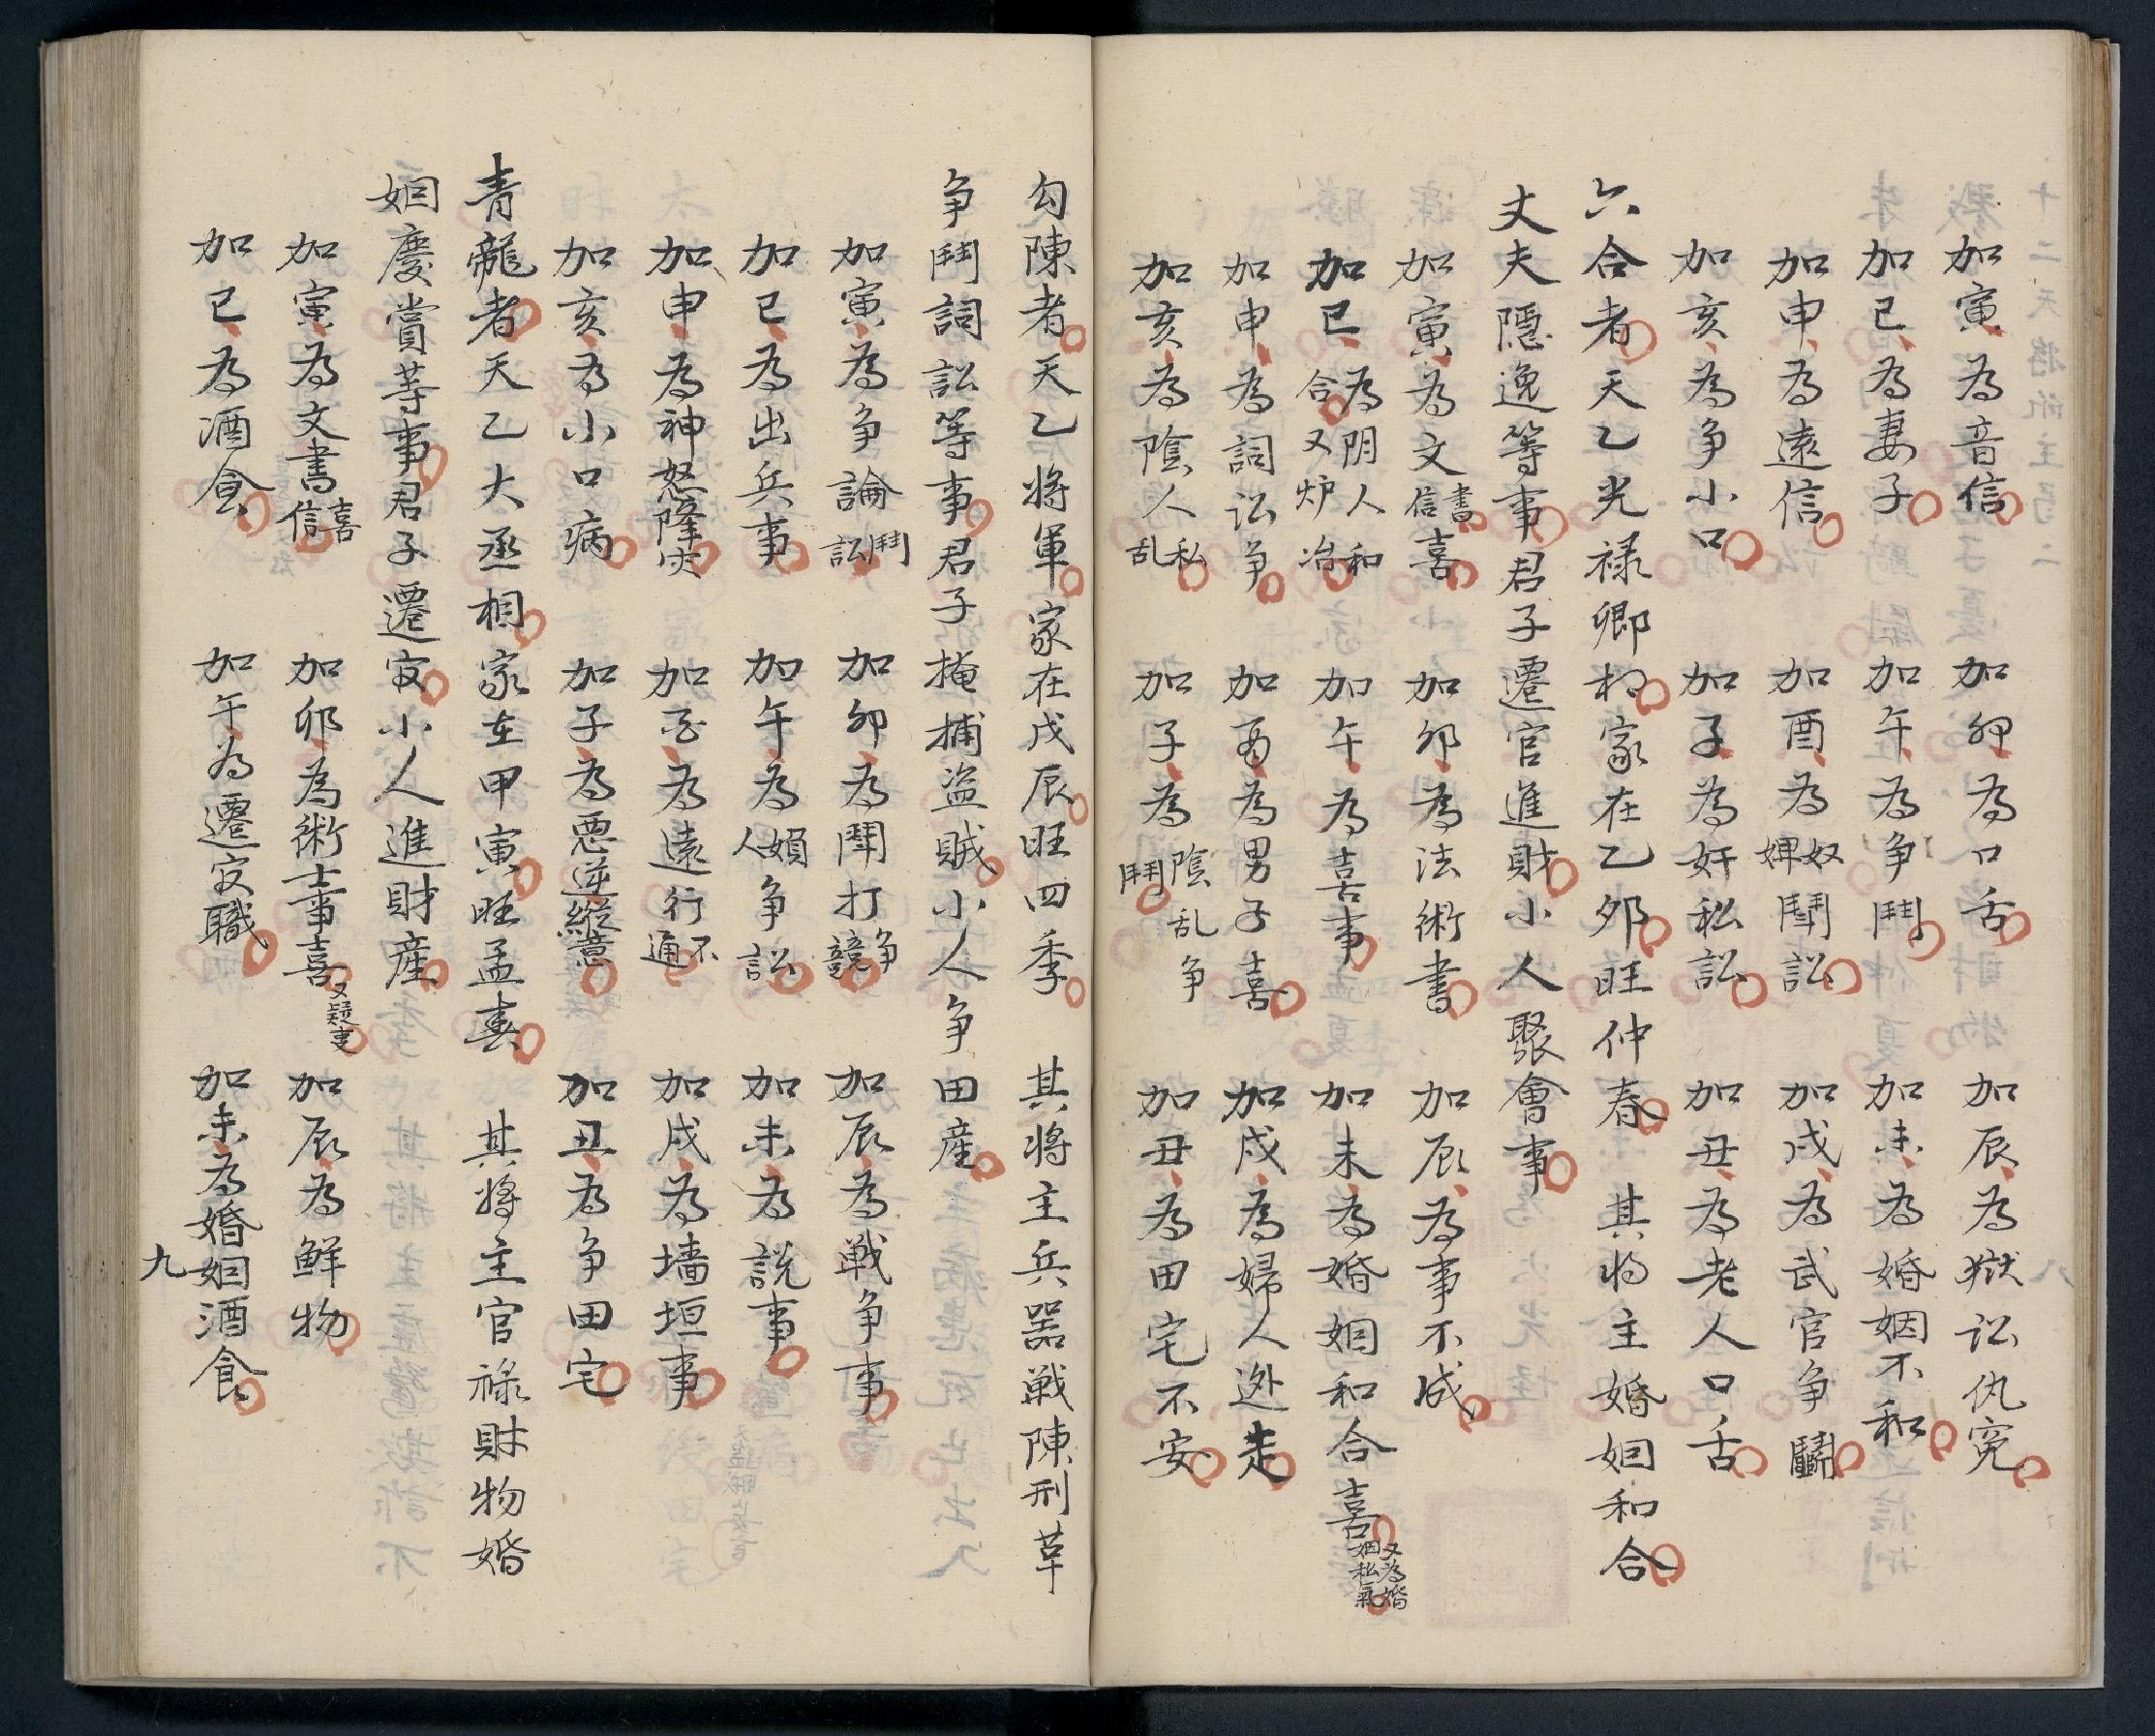 加寅為音信　加卯為口舌　加辰為獄訟仇寃
加巳為妻子　加午為争鬥　加未為婚姻不和
加申為遠信　加酉為奴婢鬪訟　加戌為武官争鬪
加亥為争小口　加子為奸私訟　加丑為老人口舌
六合者天乙光禄卿相家在乙夘旺仲春　其将主婚姻和合
丈夫隱逸等事君子遷官進財小人聚會事
加寅為文書信喜　加夘為法術書　加辰為事不成
加巳為阴人和合又炉冶　加午為喜事　加未為婚姻和合喜又為婚姻私氣
加申為詞訟争　加酉為男子喜　加戌為婦人迯走
加亥為陰人私乱　加子為陰乱争鬥　加丑為田宅不安
勾陳者天乙将軍家在戊辰旺四季　其将主兵噐戦陳刑草
争鬥詞訟等事君子掩捕盗賊小人争田産
加寅為争論鬥訟　加卯為鬪打争競　加辰為戦争事
加巳為出兵事　加午為婦人争訟　加未為説事
加申為神怒隆灾　加酉為遠行不通　加戌為墻垣事
加亥為小口病　加子為悪逆縦意　加丑為争田宅
青龍者天乙大丞相家在甲寅旺孟春　其将主官禄財物婚
姻慶賞等事君子遷官小人進財産
加寅為文書喜信　加卯為術士事喜又疑吏　加辰為鮮物
加巳為酒食　加午為遷官職　加未為婚姻酒食
九